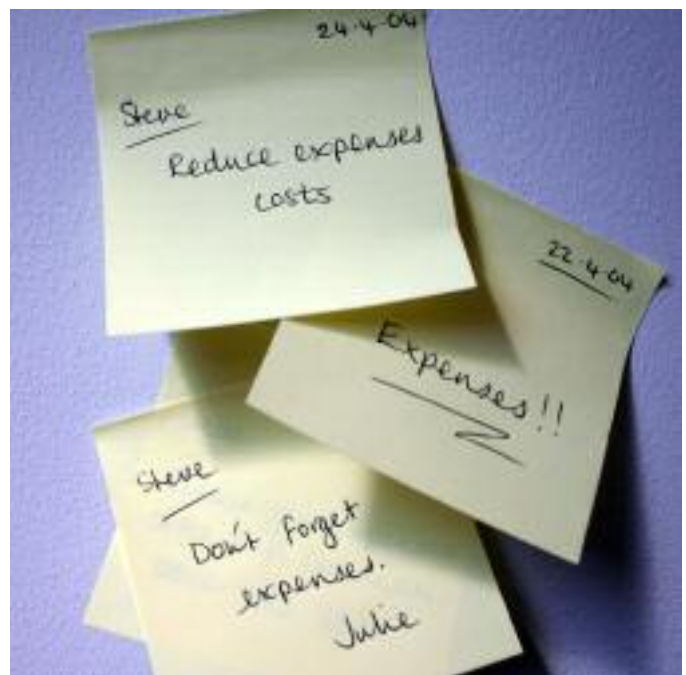 24.4.04
Steve
Reduce expenses
costs
22.4.04
Expenses!!
Steve
Don't forget
expenses.
Julie